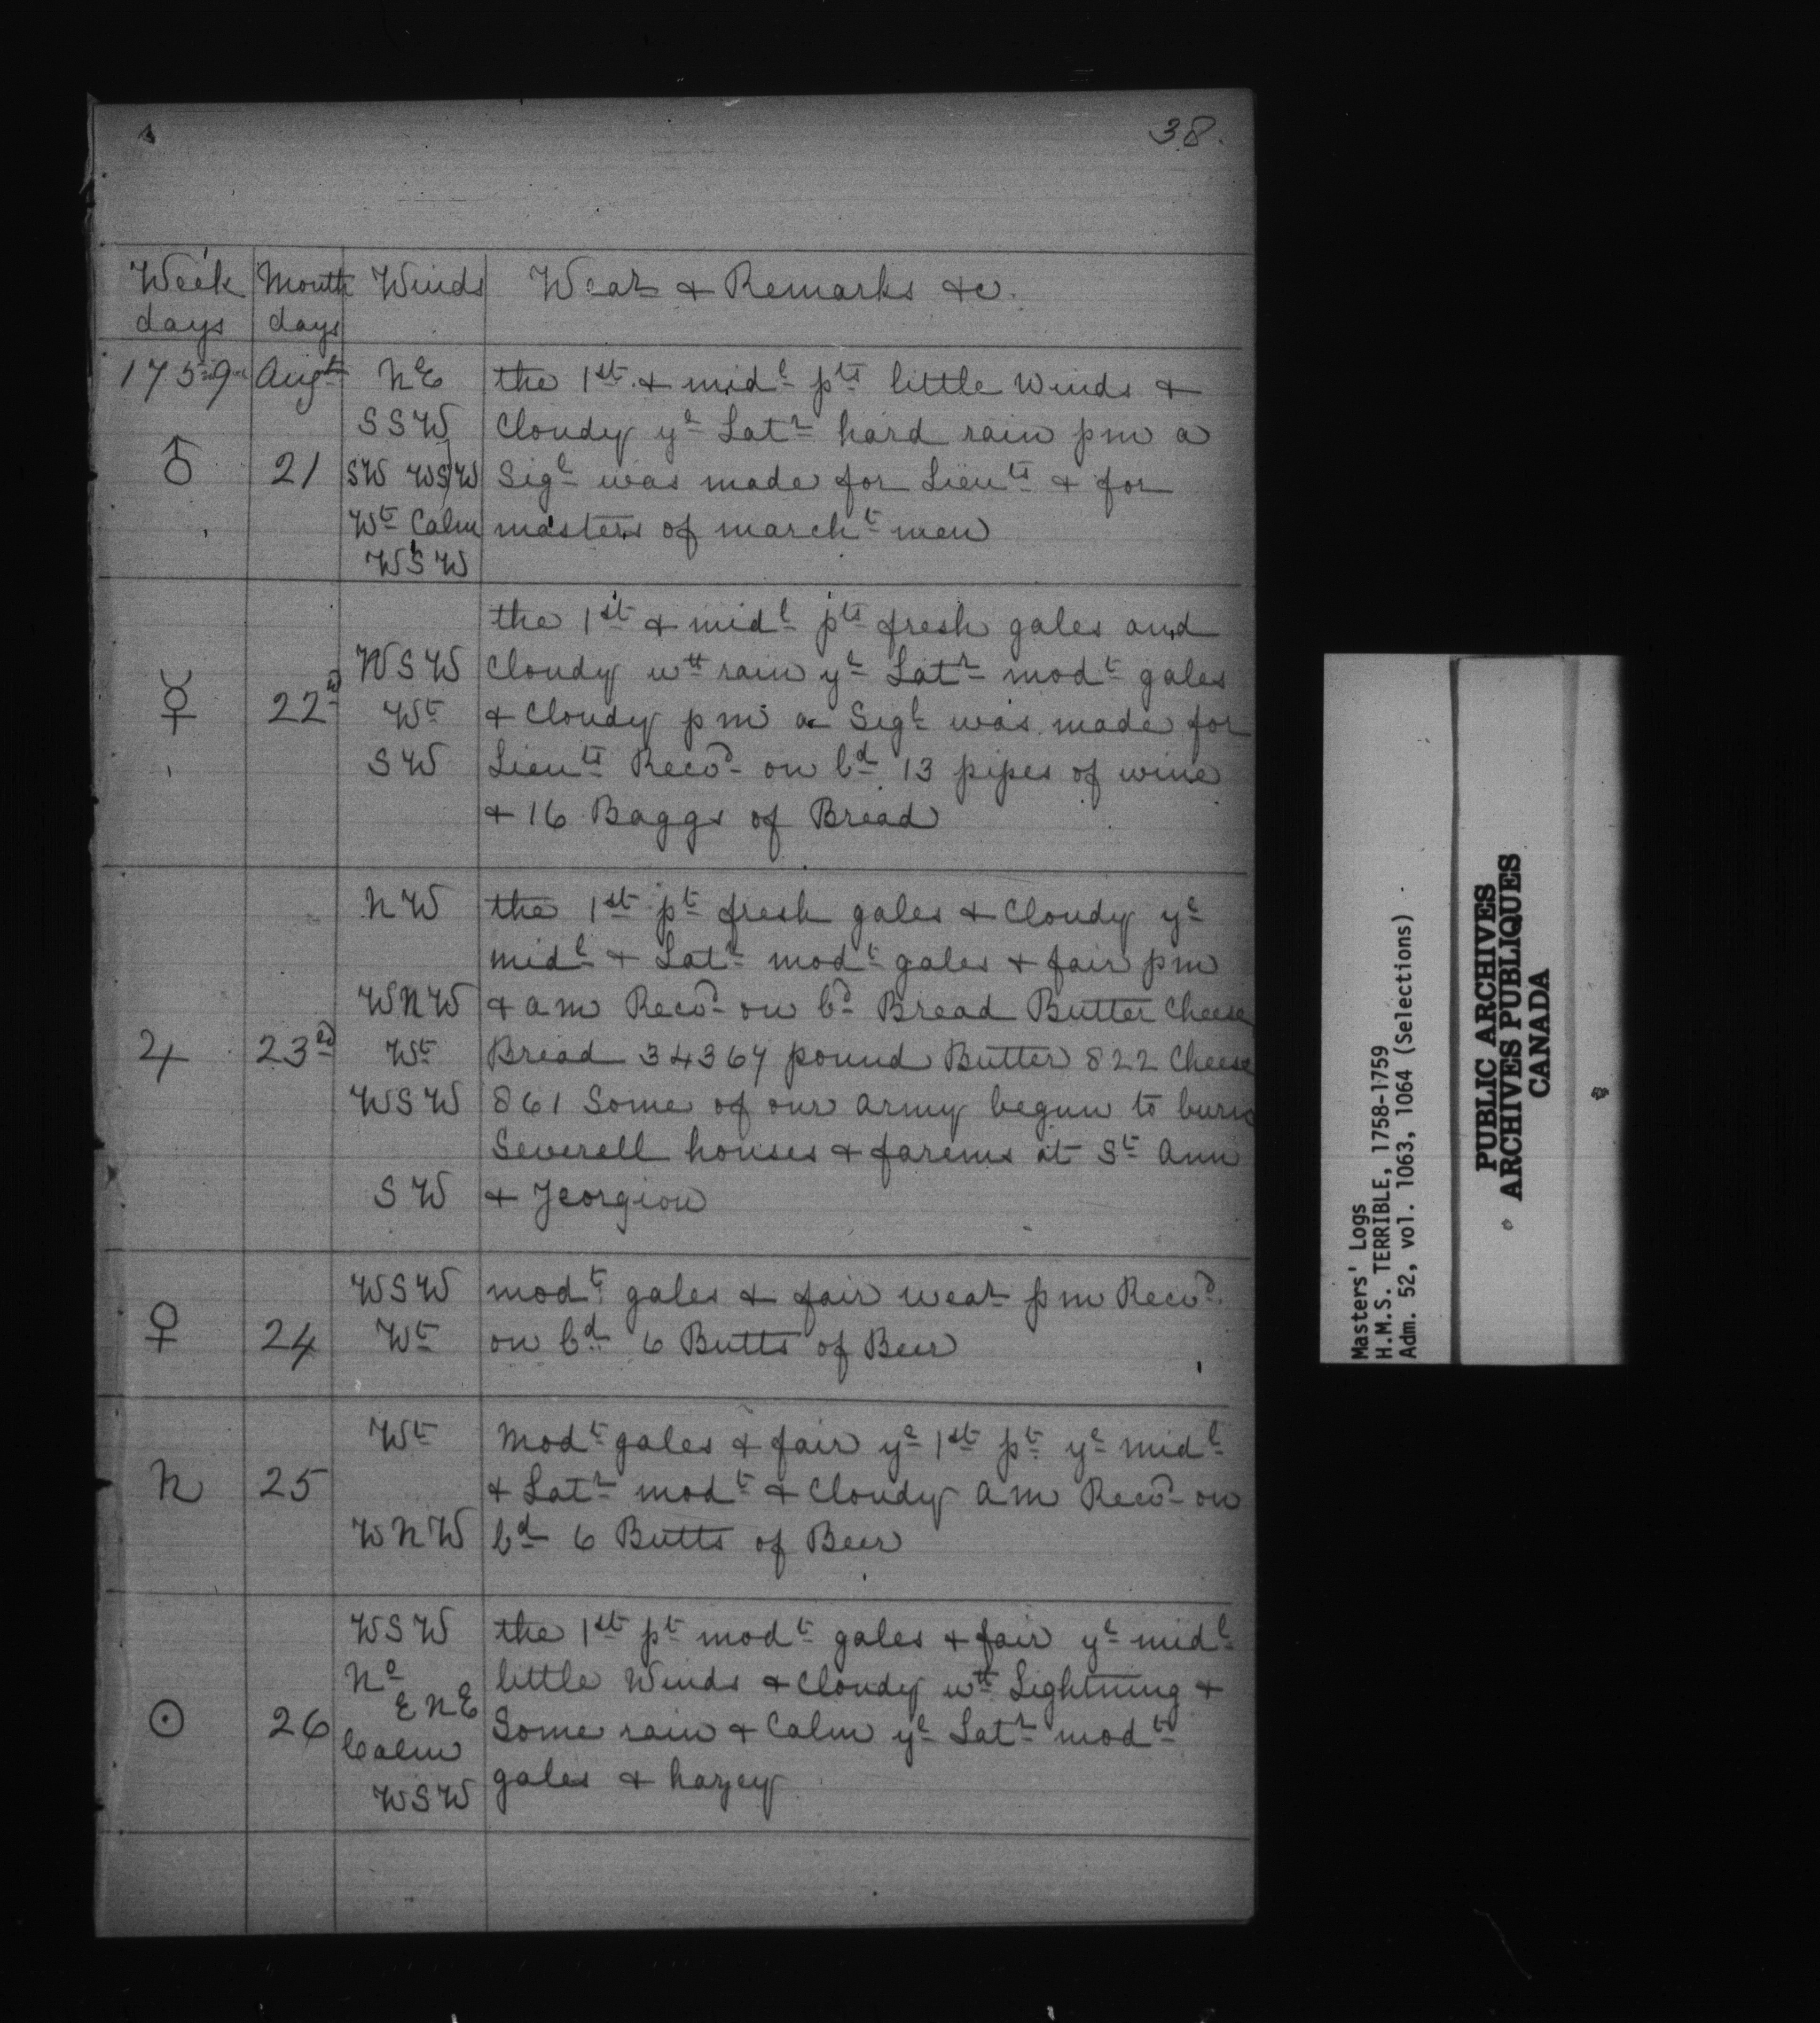 38.
Week days | Month days | Winds | Wear & Remarks &c.
1759 | Augt | NE | the 1st & midl pts little Winds &
SSW | Cloudy ye Latr hard rain pm a
♂ | 21 | SW WSW | Sigl was made for Lieuts & for
Wt Calm | masters of marcht men
WSW
the 1st & midl pts fresh gales and
WSW | Cloudy wth rain ye Latr modt gales
☿ | 22d | Wt | & Cloudy pm a Sigl was made for
SW | Lieuts Recvd on bd 13 pipes of wine
& 16 Baggs of Bread
NW | the 1st pt fresh gales & Cloudy ye
midl & Latr modt gales & fair pm
WNW | & am Recvd on bd Bread Butter Cheese
♃ | 23rd | Wt | Bread 34367 pound Butter 822 Cheese
WSW | 861 Some of our army begun to burn
Severell houses & farems at St Ann
SW | & Jeorgion
WSW | modt gales & fair wear pm Recvd
♀ | 24 | Wt | on bd 6 Butts of Beer
Wt | Modt gales & fair ye 1st pt ye midl
♄ | 25 | & Latr modt & Cloudy am Recvd on
WNW | bd 6 Butts of Beer
WSW | the 1st pt modt gales & fair ye midl
No | little Winds & Cloudy wth Lightning &
☉ | 26 | ENE | Some rain & Calm ye Latr modt
Calm | gales & hazey
WSW
Masters' Logs
H.M.S. TERRIBLE, 1758-1759
Adm. 52, vol. 1063, 1064 (Selections)
PUBLIC ARCHIVES
ARCHIVES PUBLIQUES
CANADA